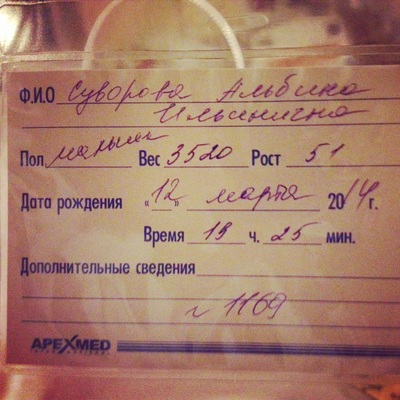 Ф.И.О Суворова Альбина
Ильинична
Пол мальчик Вес 3520 Рост 51
Дата рождения «12» марта 2014 г.
Время 19 ч. 25 мин.
Дополнительные сведения
1169
APEXMED